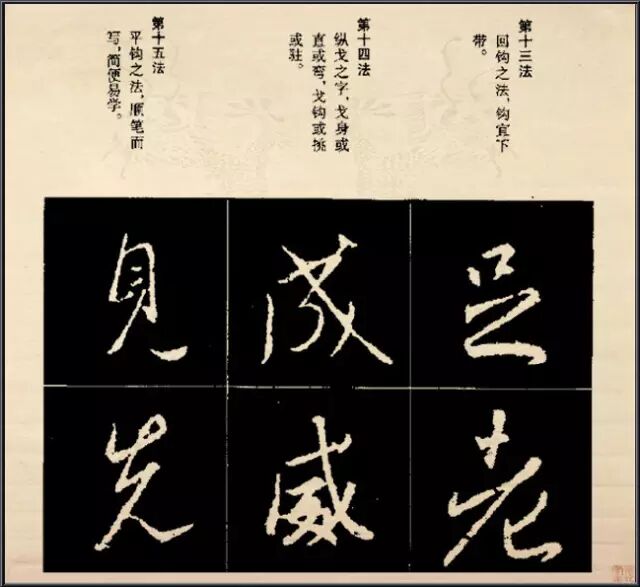 第十三法
回钩之法，钩宜下
带。
第十四法
纵戈之字，戈身或
直或弯，戈钩或挑
或驻。
第十五法
平钩之法，顺笔而
写，简便易学。
足
老
成
威
見
先